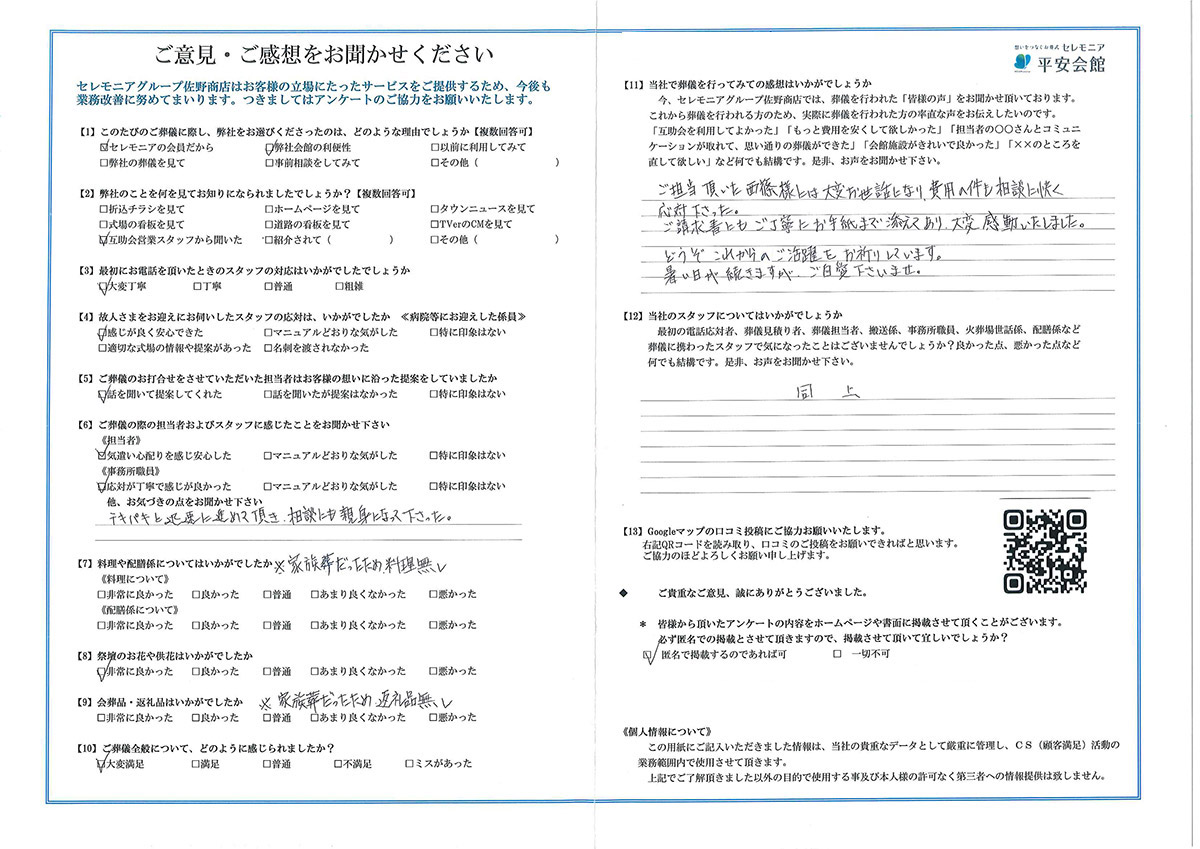 ご意見・ご感想をお聞かせください
セレモニアグループ佐野商店はお客様の立場にたったサービスをご提供するため、今後も
業務改善に努めてまいります。つきましてはアンケートのご協力をお願いいたします。
【1】このたびのご葬儀に際し、弊社をお選びくださったのは、どのような理由でしょうか【複数回答可】
☑セレモニアの会員だから ☑弊社会館の利便性 □以前に利用してみて
□弊社の葬儀を見て □事前相談をしてみて □その他（ ）
【2】弊社のことを何を見てお知りになられましたでしょうか？【複数回答可】
□折込チラシを見て □ホームページを見て □タウンニュースを見て
□式場の看板を見て □道路の看板を見て □TVerのCMを見て
☑互助会営業スタッフから聞いた □紹介されて（ ） □その他（ ）
【3】最初にお電話を頂いたときのスタッフの対応はいかがでしたでしょうか
☑大変丁寧 □丁寧 □普通 □粗雑
【4】故人さまをお迎えにお伺いしたスタッフの応対は、いかがでしたか ≪病院等にお迎えした係員≫
☑感じが良く安心できた □マニュアルどおりな気がした □特に印象はない
□適切な式場の情報や提案があった □名刺を渡されなかった
【5】ご葬儀のお打合せをさせていただいた担当者はお客様の想いに沿った提案をしていましたか
☑話を聞いて提案してくれた □話を聞いたが提案はなかった □特に印象はない
【6】ご葬儀の際の担当者およびスタッフに感じたことをお聞かせ下さい
《担当者》
☑気遣い心配りを感じ安心した □マニュアルどおりな気がした □特に印象はない
《事務所職員》
☑応対が丁寧で感じが良かった □マニュアルどおりな気がした □特に印象はない
他、お気づきの点をお聞かせ下さい
テキパキと迅速に進めて頂き、相談にも親身になって下さった。
【7】料理や配膳係についてはいかがでしたか ※家族葬だったため料理無し
《料理について》
□非常に良かった □良かった □普通 □あまり良くなかった □悪かった
《配膳係について》
□非常に良かった □良かった □普通 □あまり良くなかった □悪かった
【8】祭壇のお花や供花はいかがでしたか
☑非常に良かった □良かった □普通 □あまり良くなかった □悪かった
【9】会葬品・返礼品はいかがでしたか ※家族葬だったため返礼品無し
□非常に良かった □良かった □普通 □あまり良くなかった □悪かった
【10】ご葬儀全般について、どのように感じられましたか？
☑大変満足 □満足 □普通 □不満足 □ミスがあった
想いをつなぐお葬式 セレモニア
平安会館
【11】当社で葬儀を行ってみての感想はいかがでしょうか
今、セレモニアグループ佐野商店では、葬儀を行われた「皆様の声」をお聞かせ頂いております。
これから葬儀を行われる方のため、実際に葬儀を行われた方の率直な声をお伝えしたいのです。
「互助会を利用してよかった」「もっと費用を安くして欲しかった」「担当者の〇〇さんとコミュニ
ケーションが取れて、思い通りの葬儀ができた」「会館施設がきれいで良かった」「××のところを
直して欲しい」など何でも結構です。是非、お声をお聞かせ下さい。
ご担当頂いた西條様には大変お世話になり、費用の件も相談に快く
応対下さった。
ご請求書にもご丁寧にお手紙まで添えてあり、大変感動いたしました。
どうぞこれからのご活躍をお祈りしています。
暑い日が続きますが、ご自愛下さいませ。
【12】当社のスタッフについてはいかがでしょうか
最初の電話応対者、葬儀見積り者、葬儀担当者、搬送係、事務所職員、火葬場世話係、配膳係など
葬儀に携わったスタッフで気になったことはございませんでしょうか？良かった点、悪かった点など
何でも結構です。是非、お声をお聞かせ下さい。
同 上
【13】Googleマップの口コミ投稿にご協力お願いいたします。
右記QRコードを読み取り、口コミのご投稿をお願いできればと思います。
ご協力のほどよろしくお願い申し上げます。
◆ ご貴重なご意見、誠にありがとうございました。
＊ 皆様から頂いたアンケートの内容をホームページや書面に掲載させて頂くことがございます。
必ず匿名での掲載とさせて頂きますので、掲載させて頂いて宜しいでしょうか？
☑ 匿名で掲載するのであれば可 □ 一切不可
《個人情報について》
この用紙にご記入いただきました情報は、当社の貴重なデータとして厳重に管理し、ＣＳ（顧客満足）活動の
業務範囲内で使用させて頂きます。
上記でご了解頂きました以外の目的で使用する事及び本人様の許可なく第三者への情報提供は致しません。